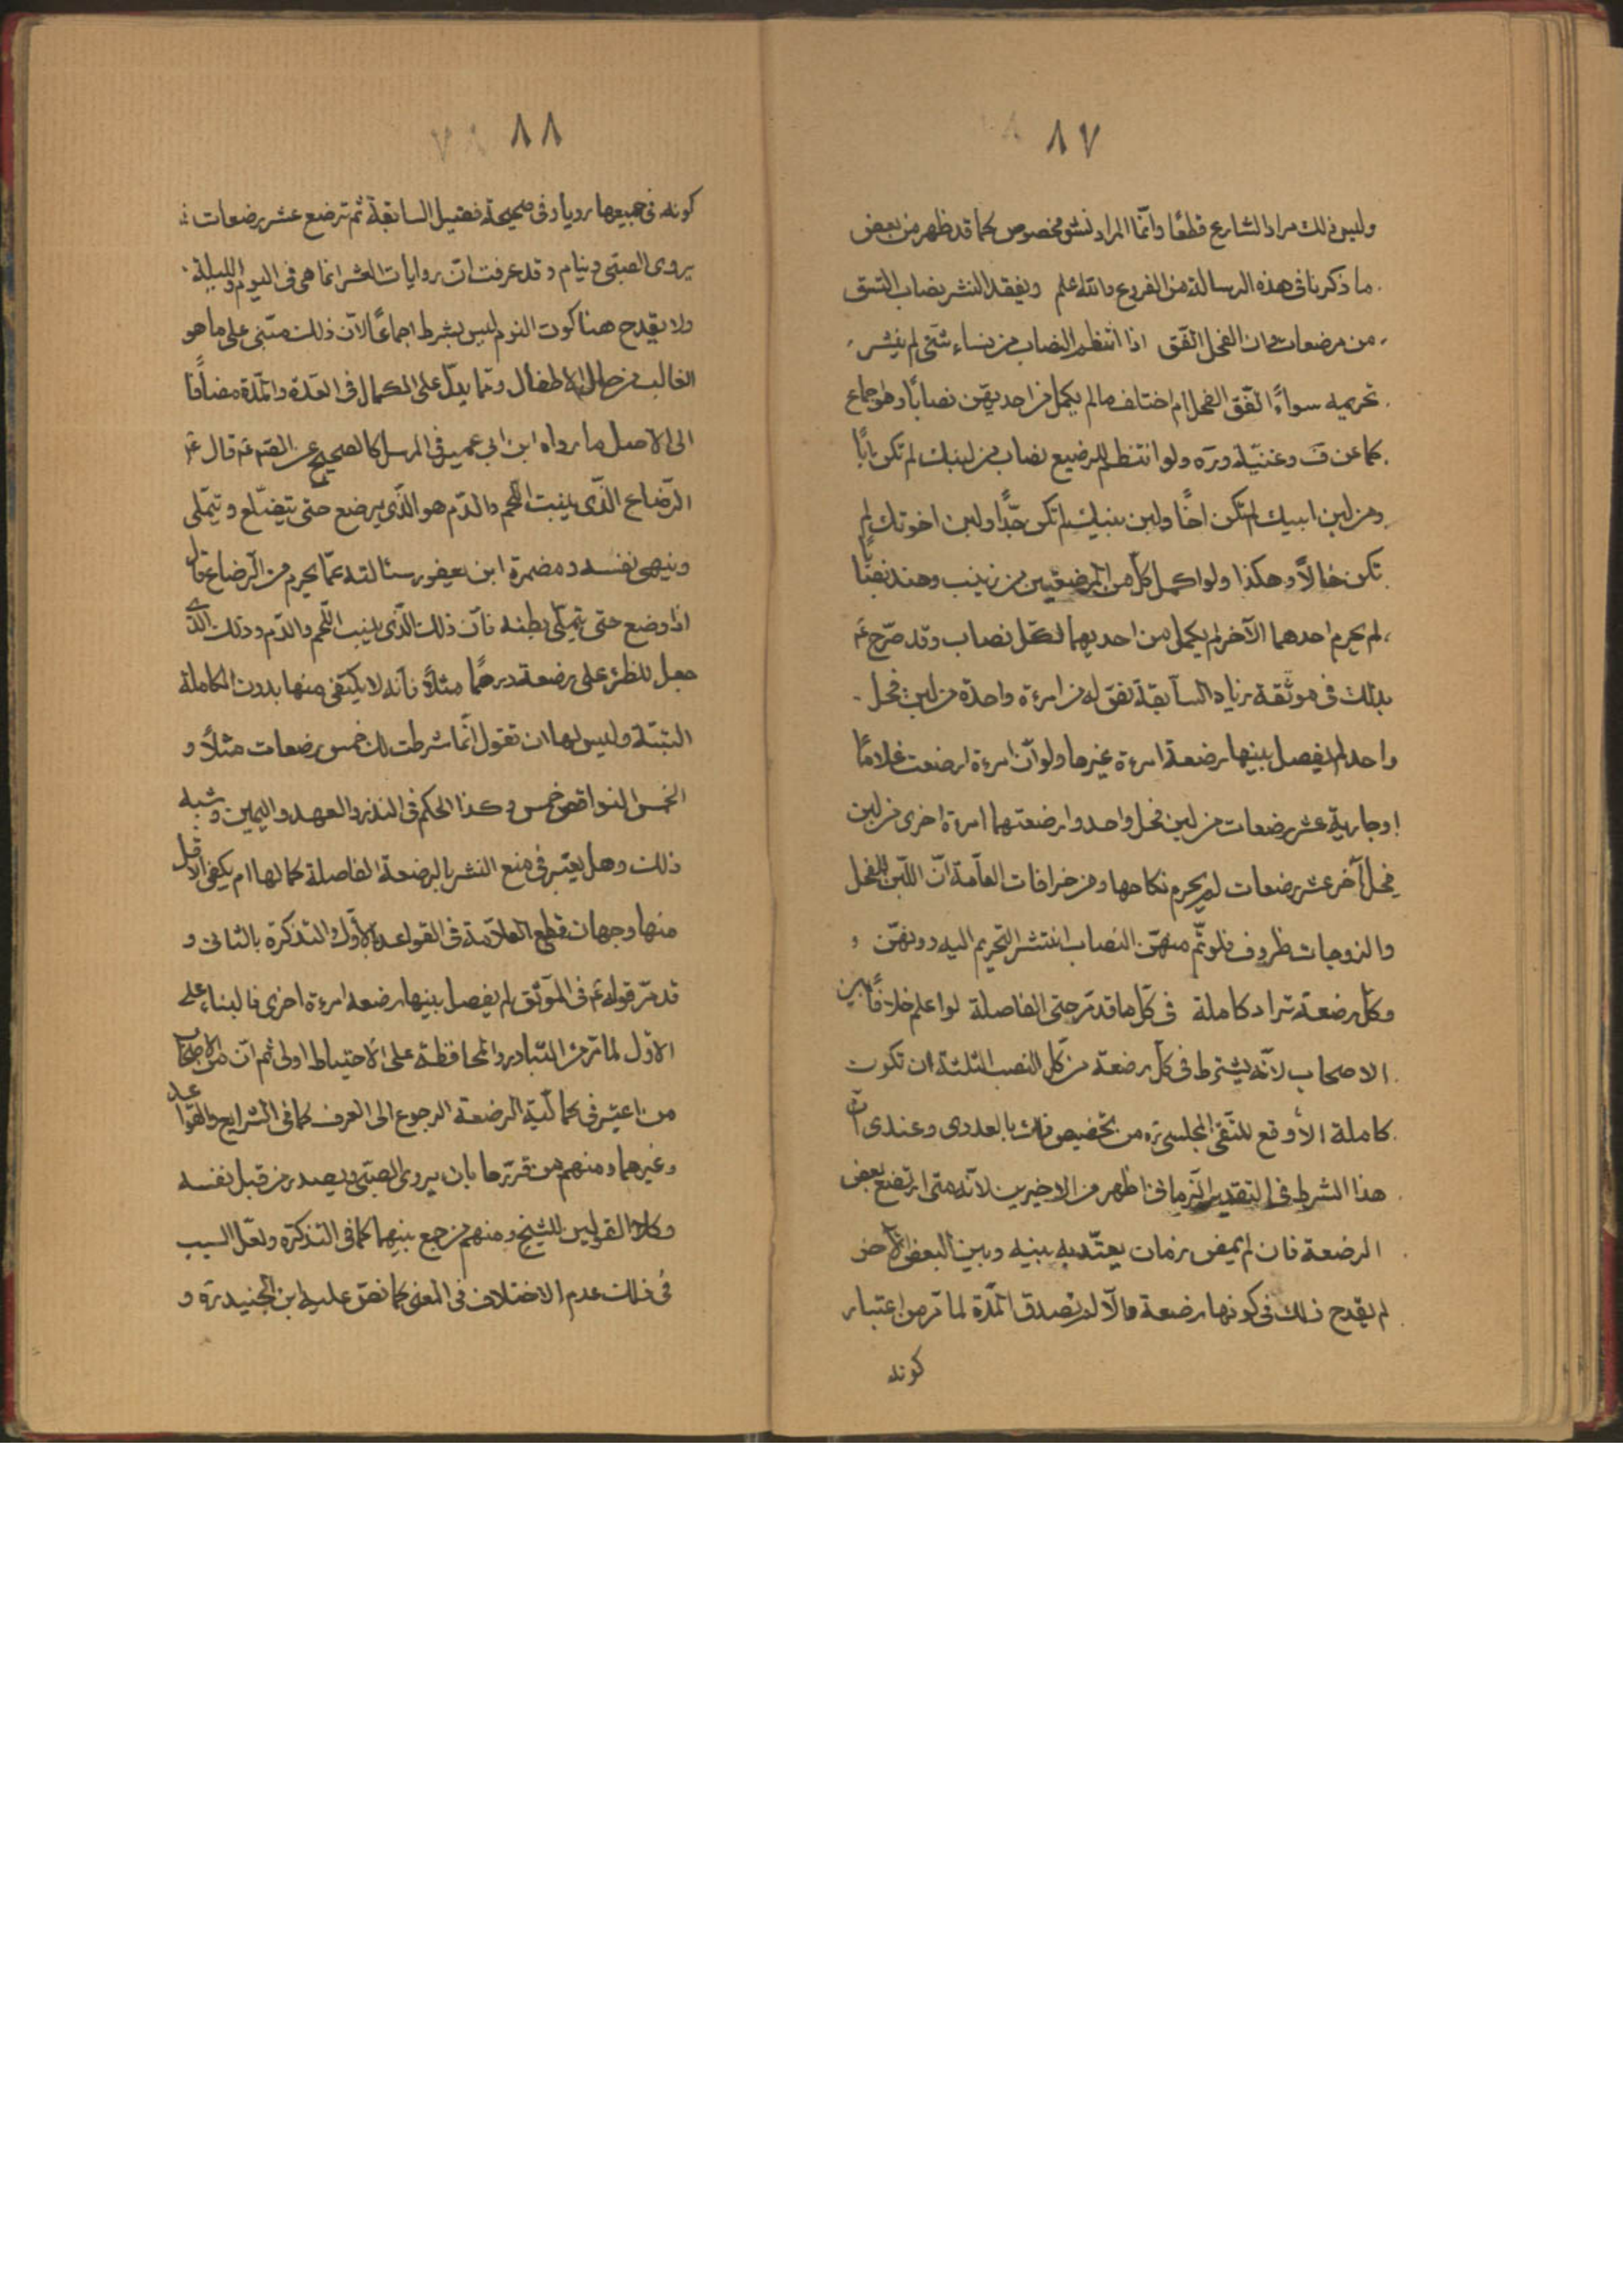 ٨٧
وليس ذلك مراد الشارع قطعًا وانّما المراد نشو مخصوص كما قد ظهر من بعض
ما ذكرنا فى هذه الرسالة من الفروع والله اعلم ويفقد النشر بنصاب التسق
من مرضعات وان الفحل اتّفق اذا انتظم النصاب من نساء شتى لم ينشر
تحريمه سواءً اتّفق الفحل ام اختلف مالم يكمل من احديهن نصابًا وهو اجماع
كما عن ف وغنية وره ولو انتظم للرضيع نصاب من لبنك لم تكن ابًا
ومن لبن ابيك لم تكن اخًا ولبن بنيك لم تكن جدًّا ولبن اخوتك لم
تكن خالاً وهكذا ولو اكمل كل من المرضعتين من زينب وهند نصابًا
لم يحرم احدهما الآخر لم يكمل من احديهما لكل نصاب وقد صرّح عم
بذلك فى موثقة زياد السابقة بقوله من امرءة واحدة من لبن فحل
واحد لم يفصل بينها رضعة امرءة غيرها ولو انّ امرءة ارضعت غلامًا
او جارية عشر رضعات من لبن فحل واحد وارضعتهما امرءة اخرى من لبن
فحل آخر عشر رضعات لم يحرم نكاحها ومن خرافات العامّة انّ اللّبن للفحل
والزوجات ظروف فلو تمّ منهنّ النصاب انتشر التحريم اليه دونهنّ و
وكل رضعة تراد كاملة فى كل ما قد مّر حتى الفاصلة لو اعلم خلافًا بين
الاصحاب لانّه يشترط فى كل رضعة من كل النصب الثلثة ان تكون
كاملة الا وقع للتقى المجلسى ره من تخصيص ذلك بالعددى وعندى انّ
هذا الشرط فى التقدير الزمانى اظهر من الاخيرين لانّه متى ارتضع بعض
الرضعة فان لم يمض زمان يعتدّ به بينه وبين البعض الآخر
لم يقدح ذلك فى كونها رضعة والّا لم تصدق المدّة لما مّر من اعتبار
كونه
٨٨
كونه فى جميعها رويا وفى صحيحة فضيل السابقة ثم ترضع عشر رضعات
يروى الصبّى وينام وقد عرفت انّ روايات العشر انما هى فى اليوم والليلة
ولا يقدح هنا كون النوم ليس بشرط اجماعًا لانّ ذلك مبنى على ما هو
الغالب من حال الاطفال وممّا يدلّ على الكمال فى العدّة والمدّة مضافًا
الى الاصل ما رواه ابن ابى عمير فى المرسل كالصحيح عن الصّم عم قال
الرّضاع الذّى ينبت اللّحم والدّم هو الذّى يرضع حتى يتضلّع ويتملّى
وينهى نفسه ومضمرة ابن يعفور سئالته عمّا يحرم من الرضاع قال
اذا رضع حتى يتملّى بطنه فانّ ذلك الذّى ينبت اللّحم والدّم وذلك الّذى
جعل للظئر على رضعة درهمًا مثلاً فانّه لا يكتفى منها بدون الكاملة
البتّة وليس لها ان تقول انّما شرطت لك خمس رضعات مثلاً و
الخمس النواقص خمس وكذا الحكم فى النذر والعهد واليمين وشبه
ذلك وهل يعتبر فى منع النشر بالرضعة الفاصلة كمالها ام يكفى الاقل
منها وجهان قطع العلاّمة فى القواعد بالأول والتذكرة بالثانى و
قد مّر قوله عم فى الموثّق لم يفصل بينها رضعة امرءة اخرى فالبناء على
الاول لما مّر من التبادر والمحافظة على الاحتياط اولى ثم انّ من الاصحاب
من اعتبر فى كماليّة الرضعة الرجوع الى العرف كما فى الشرايع والقواعد
وغيرهما ومنهم من قرّرها بان يروى الصبّى ويصدر من قبل نفسه
وكلا القولين للشيخ ومنهم من جمع بينهما كما فى التذكرة ولعل السبب
فى ذلك عدم الاختلاف فى المعنى كما نصّ عليه ابن الجنيد ره و